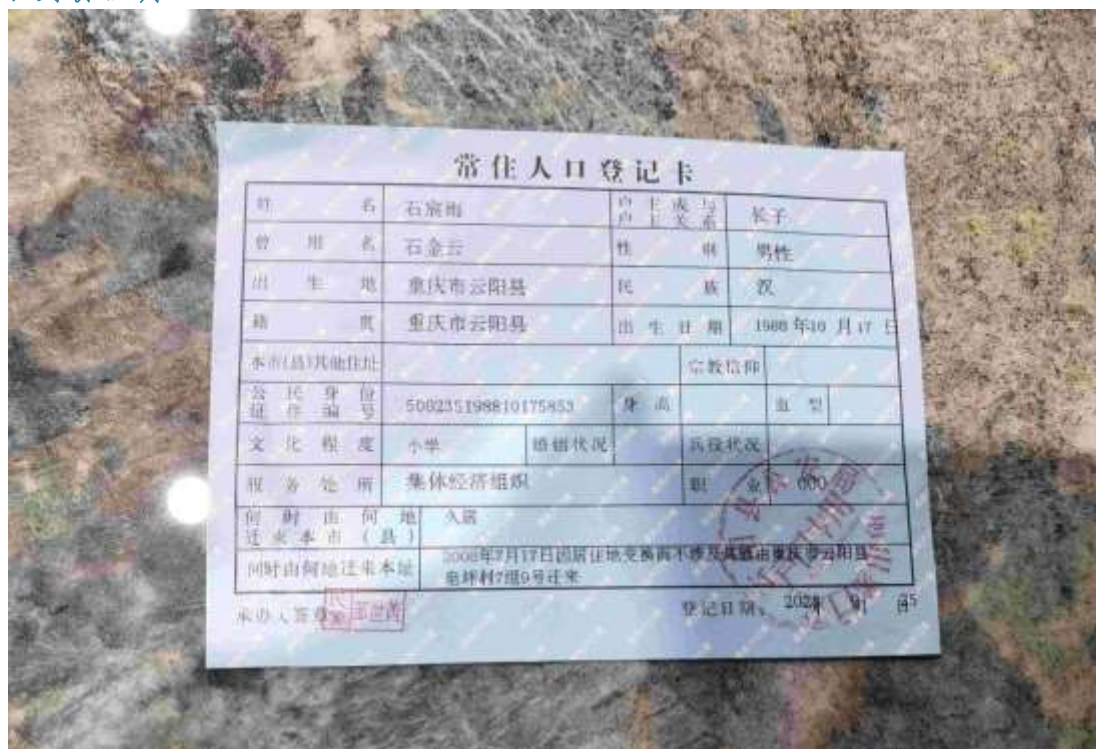 常住人口登记卡
姓名 石宸雨 户主或与户主关系 长子
曾用名 石金云 性别 男性
出生地 重庆市云阳县 民族 汉
籍贯 重庆市云阳县 出生日期 1988年10月17日
本市(县)其他住址 宗教信仰
公民身份证件编号 500235198810175853 身高 血型
文化程度 小学 婚姻状况 兵役状况
服务处所 集体经济组织 职业 000
何时由何地迁来本市(县) 久居
何时由何地迁来本址 2008年7月17日因居住地变换而不涉及其他由重庆市云阳县
村7组9号迁来
承办人签章: 登记日期: 01 25